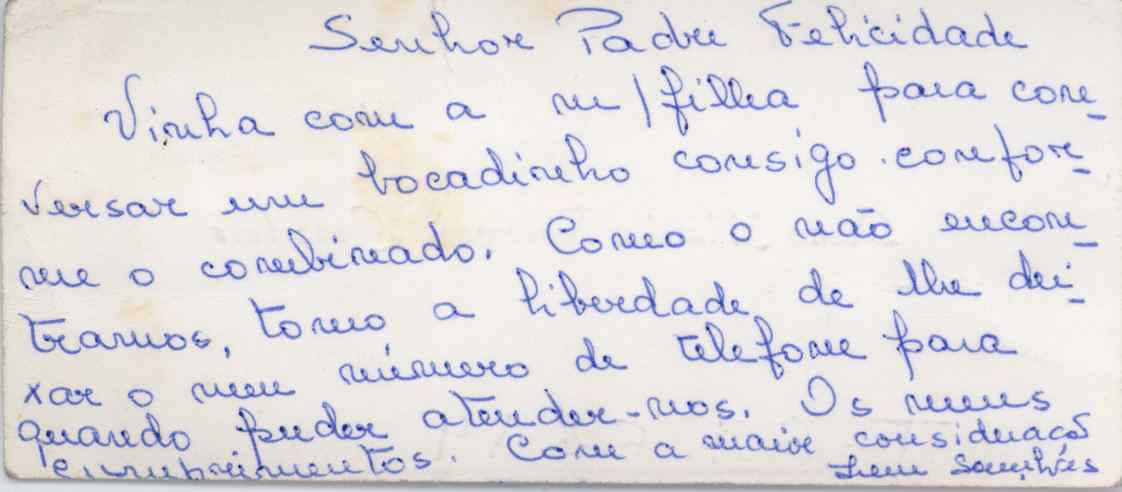 Senhor Padre Felicidade
Vinha com a m/filha para con-
versar um bocadinho consigo. confor-
me o combinado. Como o não encon-
tramos, tomo a liberdade de lhe dei-
xar o meu número de telefone para
quando puder atender-nos. Os meus
cumprimentos. Com a maior consideração